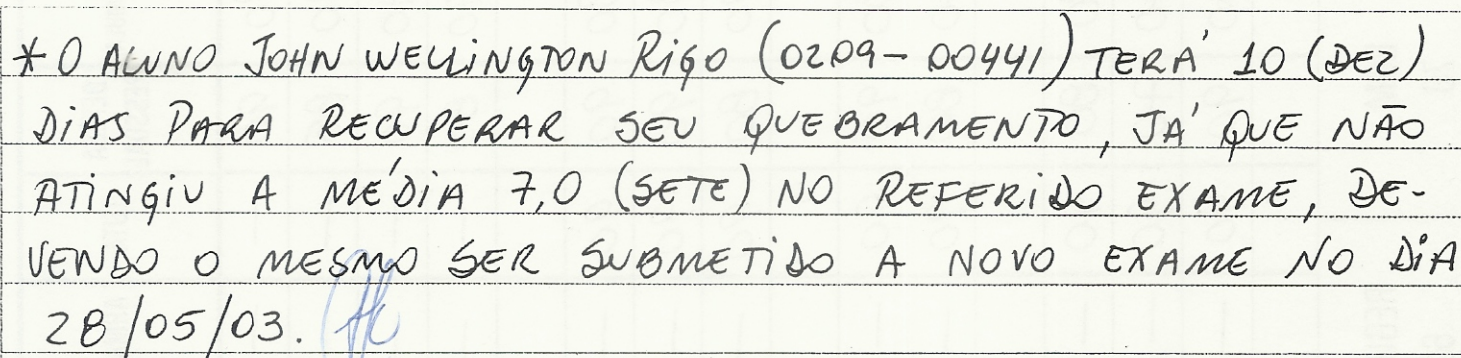 * O ALUNO JOHN WELLINGTON RIGO (0209-00441) TERÁ 10 (DEZ)
DIAS PARA RECUPERAR SEU QUEBRAMENTO, JÁ QUE NÃO
ATINGIU A MÉDIA 7,0 (SETE) NO REFERIDO EXAME, DE-
VENDO O MESMO SER SUBMETIDO A NOVO EXAME NO DIA
28/05/03.